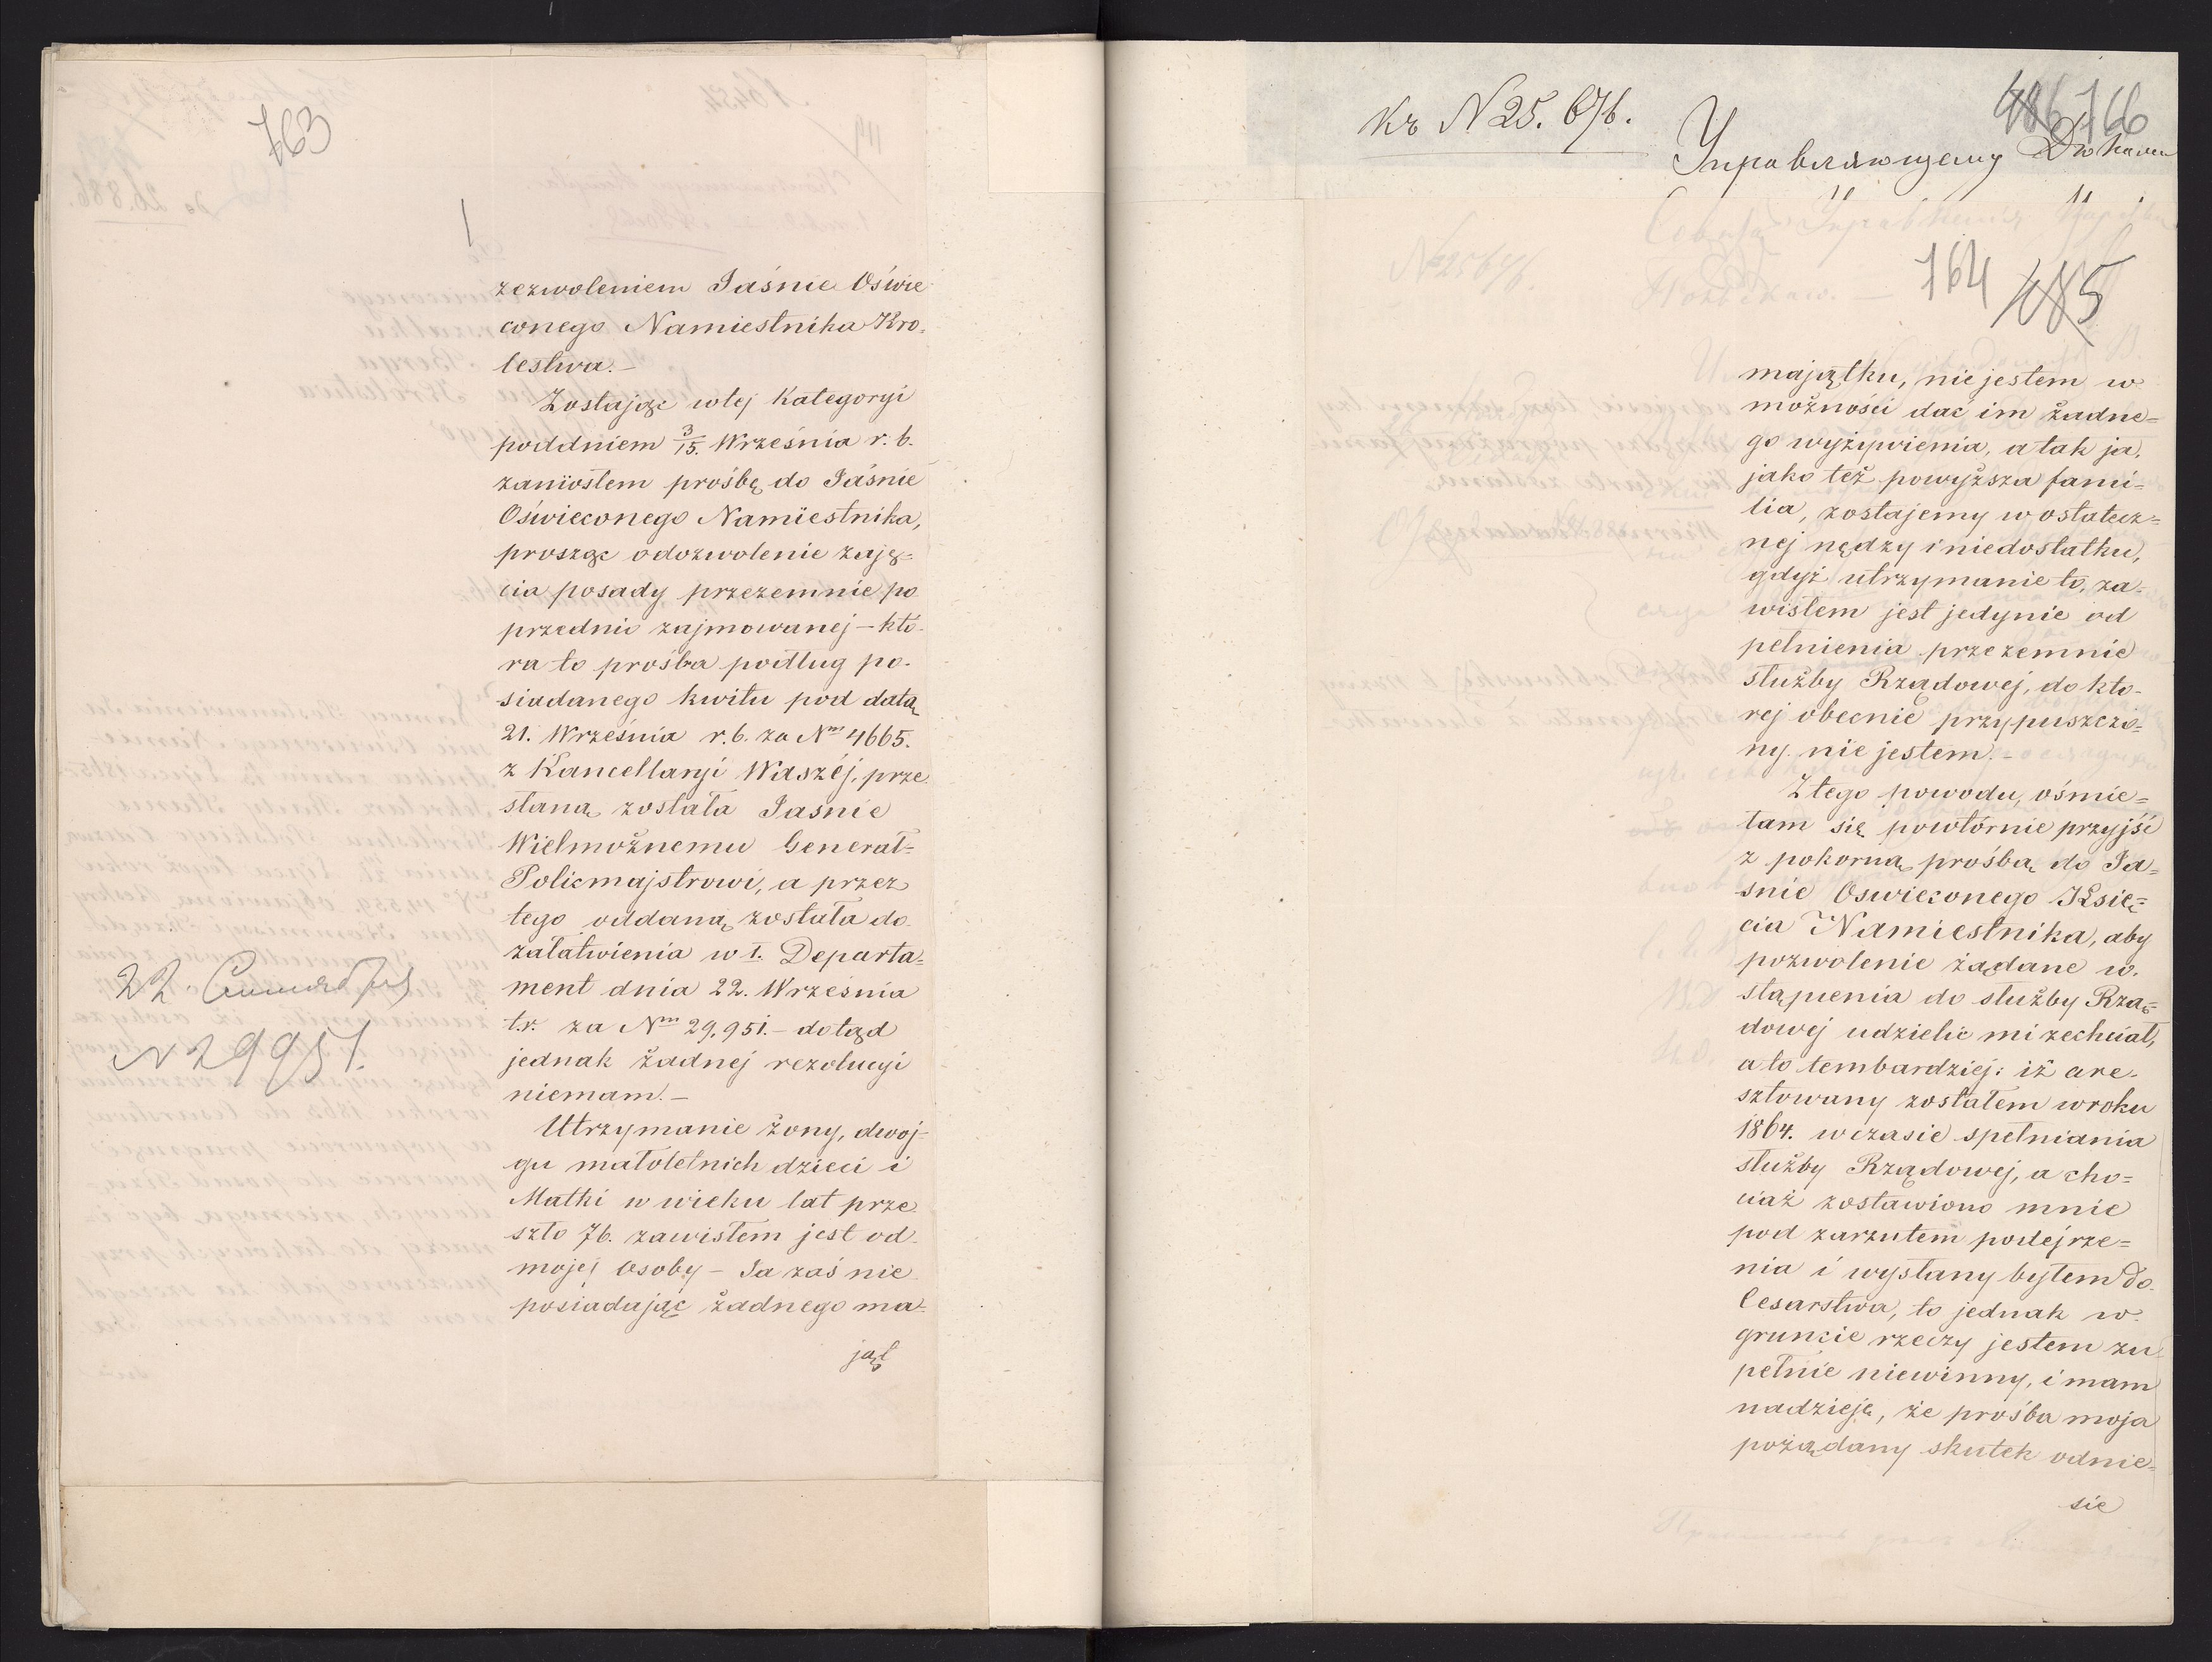 763
zezwoleniem Jaśnie Oświe
conego Namiestnika Kro-
lestwa.-
Zostając wtej Kategoryi
poddniem 3/15. Września r. b.
zaniosłem prośbę do Jaśnie
Oświeconego Namiestnika,
prosząc odozwolenie zaję-
cia posady przezemnie po
przednio zajmowanej – któ-
ra to prośba podług po-
siadanego kwitu pod datą
21. Września r. b. za Nm 4665.
z Kancellaryi Waszéj, prze
słaną została Jasnie
Wielmożnemu Generał-
Policmajstrowi, a przez
tego oddaną została do
załatwienia w I. Departa-
ment dnia 22. Września
t.r. za Nm 29,951.- dotąd
jednak żadnej rezolucyi
niemam.-
Utrzymanie żony, dwoj-
gu małoletnich dzieci i
Matki w wieku lat prze
szło 76. zawisłem jest od
mojej Osoby – Ja zaś nie
posiadając żadnego ma-
jąt
22. Сентября
N 29951.
Кз N 25.676.
Управляющему
486 766
764 485
majątku, nie jestem w
możności dać im żadne-
go wyżywienia, a tak ja,
jako też powyższa fami-
lia, zostajemy w ostatecz-
nej nędzy i niedostatku,
gdyż utrzymanie to, za-
wisłem jest jedynie od
pełnienia przezemnie
służby Rządowej, do któ-
rej obecnie przypuszczo-
ny nie jestem.-
Z tego powodu, ośmie-
lam się powtórnie przyjść
z pokorną prośbą do Ja-
śnie Oswieconego Księ-
cia Namiestnika, aby
pozwolenie żądane w-
stąpienia do służby Rzą-
dowej udzielic mi zechciał,
a to tembardziej: iż are-
sztowany zostałem wroku
1864. w czasie spełniania
służby Rządowej, a cho-
ciaż zostawiono mnie
pod zarzutem podejrze-
nia i wysłany byłem do
Cesarstwa, to jednak w
gruncie rzeczy jestem zu-
pełnie niewinny, i mam
nadzieję, że prośba moja
pożądany skutek odnie-
sie